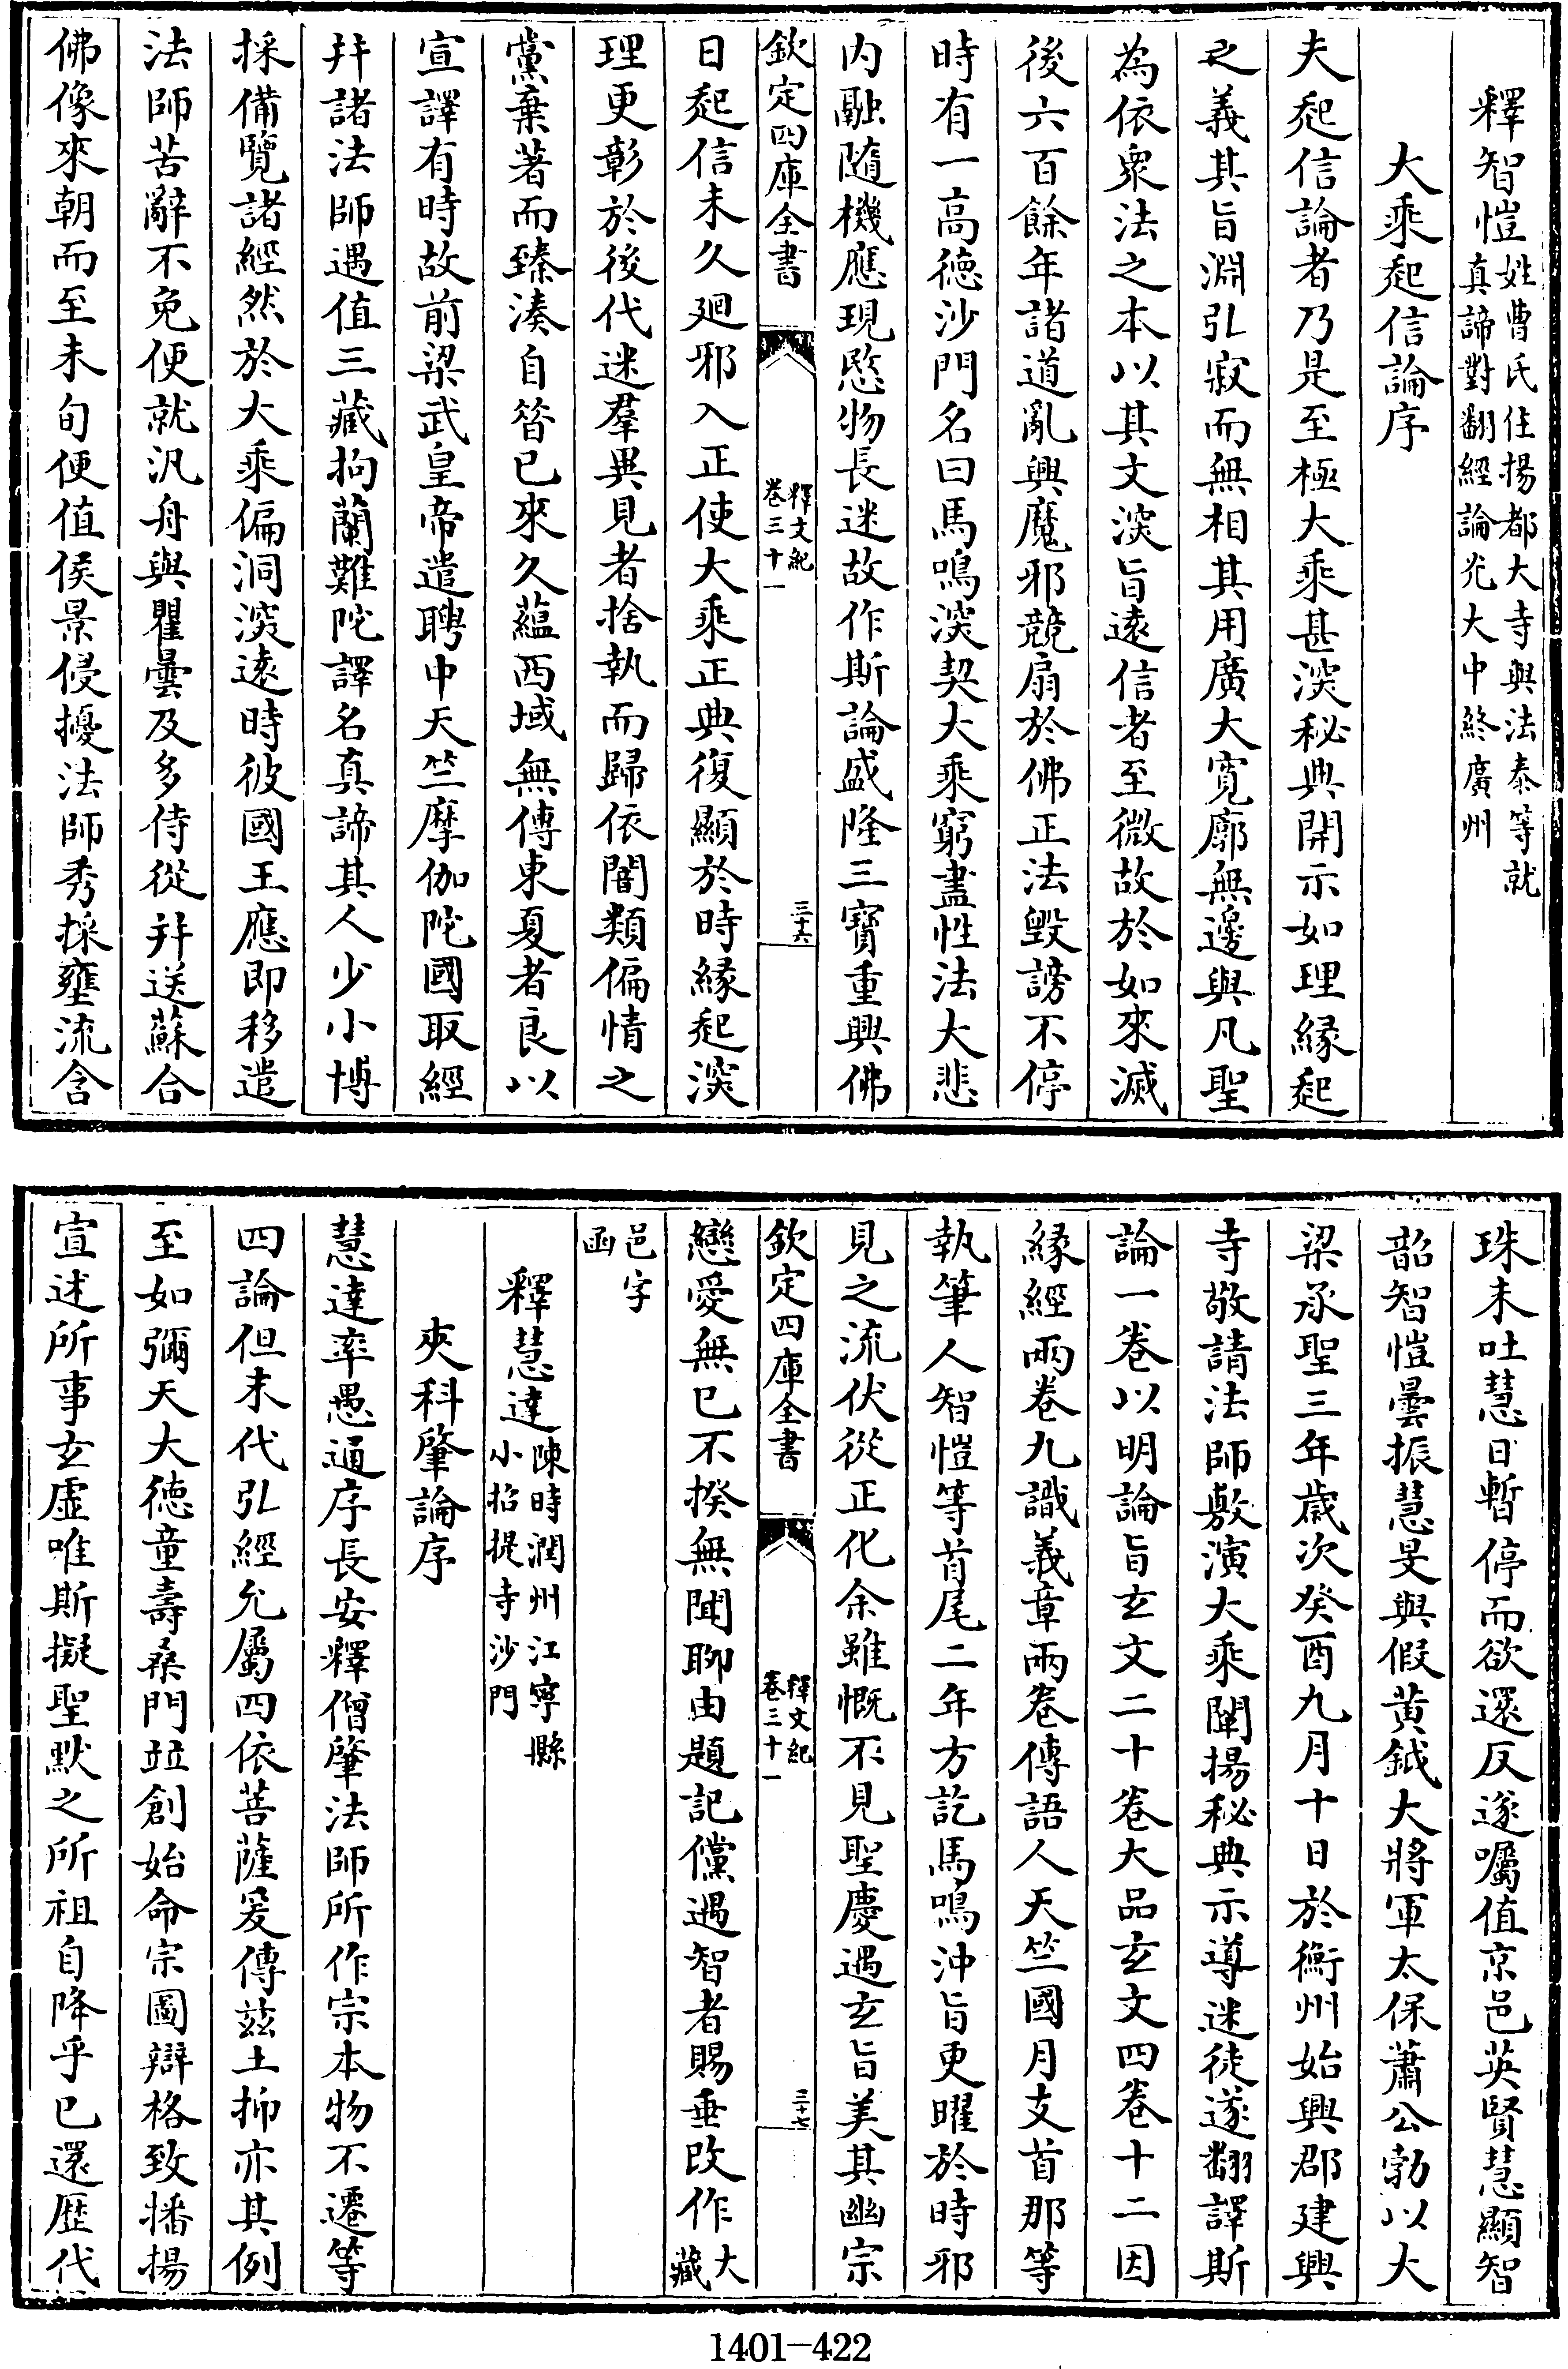 釋智愷姓曹氏住揚都大寺與法泰等就真諦對翻經論光大中終廣州
大乘起信論序
夫起信論者乃是至極大乘甚深秘典開示如理緣起
之義其旨淵弘寂而無相其用廣大寛廓無邊與凡聖
為依衆法之本以其文深旨遠信者至微故於如來滅
後六百餘年諸道亂興魔邪競扇於佛正法毀謗不停
時有一高德沙門名曰馬鳴深契大乘窮盡性法大悲
内融隨機應現愍物長迷故作斯論盛隆三寶重興佛
欽定四庫全書 釋文紀卷三十一 三十六
日起信未久廻邪入正使大乘正典復顯於時緣起深
理更彰於後代迷羣異見者捨執而歸依闇類偏情之
黨棄著而臻湊自昝已來久蘊西域無傳東夏者良以
宣譯有時故前梁武皇帝遣聘中天竺摩伽陀國取經
并諸法師遇值三藏拘蘭難陀譯名真諦其人少小博
採備覽諸經然於大乘偏洞深遠時彼國王應即移遣
法師苦辭不免便就汎舟與瞿曇及多侍從并送蘇合
佛像來朝而至未旬便值侯景侵擾法師秀採壅流含
珠未吐慧日暫停而欲還反遂囑值京邑英賢慧顯智
韶智愷曇振慧旻與假黄鉞大將軍太保蕭公勃以大
梁承聖三年歲次癸酉九月十日於衡州始興郡建興
寺敬請法師敷演大乘闡揚秘典示導迷徒遂翻譯斯
論一卷以明論旨玄文二十卷大品玄文四卷十二因
緣經兩卷九識義章兩卷傳語人天竺國月支首那等
執筆人智愷等首尾二年方訖馬鳴沖旨更曜於時邪
見之流伏從正化余雖慨不見聖慶遇玄旨美其幽宗
欽定四庫全書 釋文紀卷三十一 三十七
戀愛無已不揆無聞聊由題記儻遇智者賜垂改作大藏
邑字函
釋慧達陳時潤州江寧縣小招提寺沙門
夾科肇論序
慧達率愚通序長安釋僧肇法師所作宗本物不遷等
四論但末代弘經允屬四依菩薩爰傳兹土抑亦其例
至如彌天大德童壽桑門竝創始命宗圖辯格致播揚
宣述所事玄虛唯斯擬聖默之所祖自降乎已還歴代
1401—422